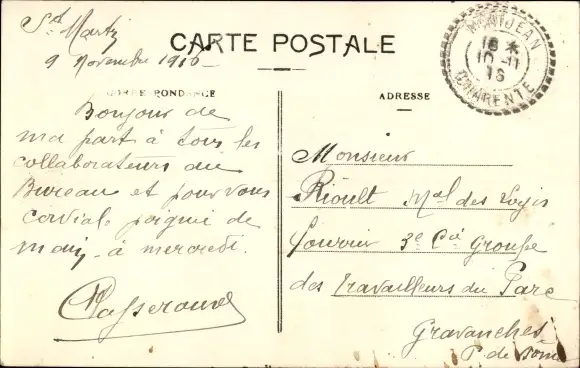 St Martin
9 Novembre 1916
CARTE POSTALE
CORRESPONDANCE
Bonjour de
ma part à tous les
collaborateurs du
Bureau et pour vous
cordial poignée de
main à mercredi.
ADRESSE
18 *
10-11
16
CHARENTE
Monsieur
Rioult Mal des Logis
Fourrier 3e Cie Groupe
des Travailleurs du Parc
Gravanches
P. de Dome